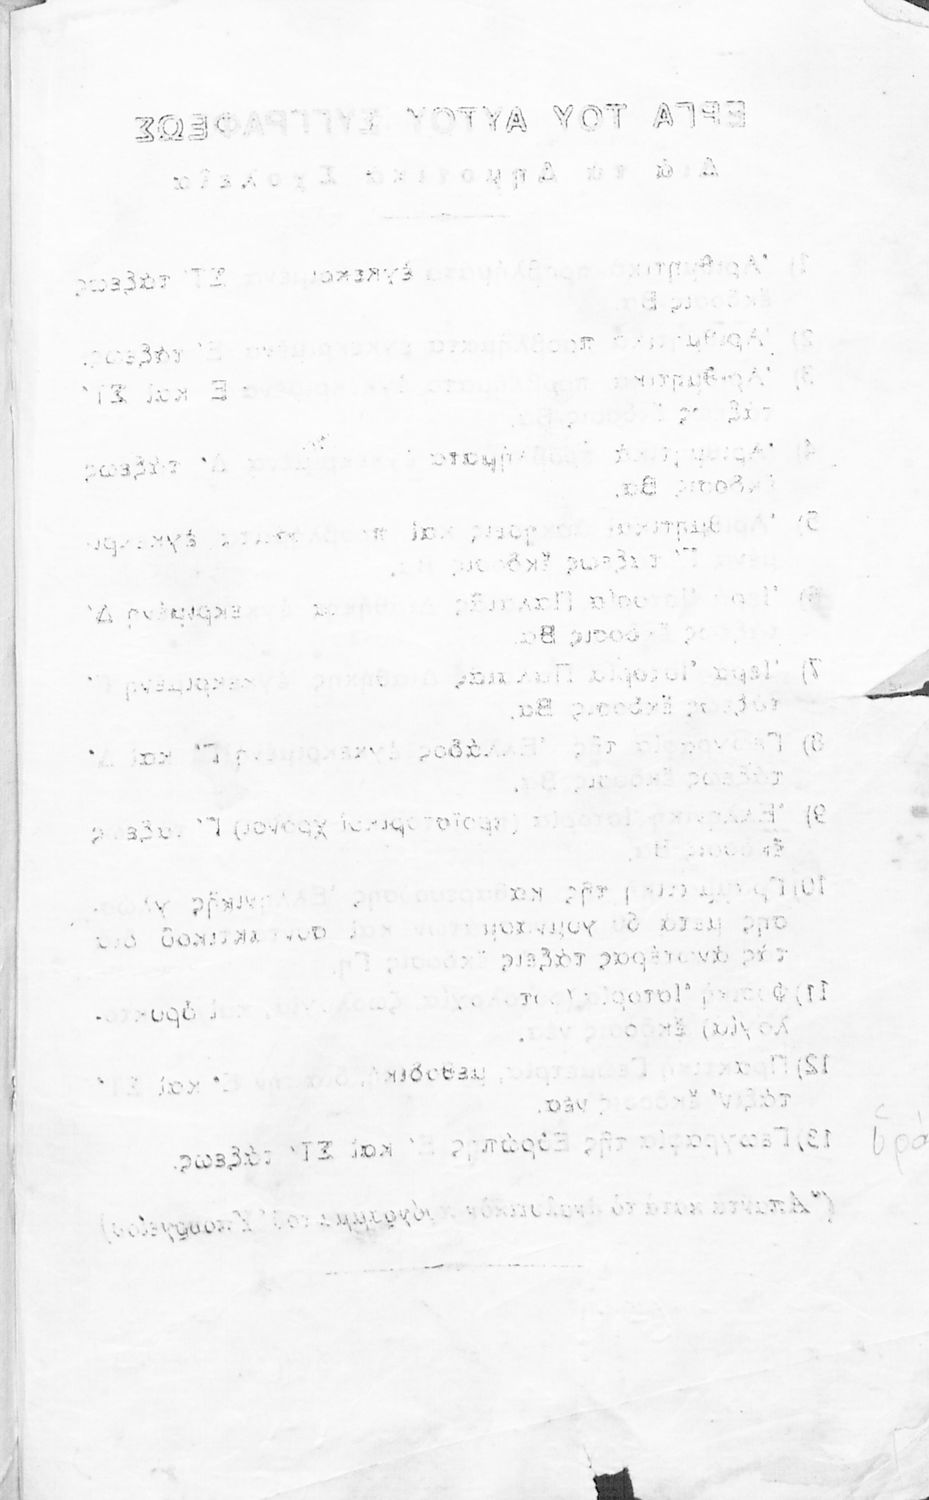 ΕΡΓΑ ΤΟΥ ΑΥΤΟΥ ΣΥΓΓΡΑΦΕΩΣ
Διὰ τα Δημοτικα Σχολεῖα
1) Ἀριθμητικὰ προβλήματα ἐγκεκριμένα ΣΤ΄ τάξεως
ἔκδοσις Βα.
2) Ἀριθμητικὰ προβλήματα ἐγκεκριμένα Ε΄ τάξεως.
3) Ἀριθμητικὰ προβλήματα ἐγκεκριμένα Ε καὶ ΣΤ΄
τάξεως ἔκδοσις Βα.
4) Ἀριθμητικὰ προβλήματα ἐγκεκριμένα Δ΄ τάξεως
ἔκδοσις Βα.
5) Ἀριθμητικαὶ ἀσκήσεις καὶ προβλήματα ἐγκεκρι-
μένα Γ΄ τάξεως ἔκδοσις Βα.
6) Ἱερὰ Ἱστορία Παλαιᾶς Διαθήκης ἐγκεκριμένη Δ΄
τάξεως ἔκδοσις Βα.
7) Ἱερὰ Ἱστορία Παλαιᾶς Διαθήκης ἐγκεκριμένη Γ΄
τάξεως ἔκδοσις Βα.
8) Γεωγραφία τῆς Ἑλλάδος ἐγκεκριμένη Γ΄ καὶ Δ΄
τάξεως ἔκδοσις Βα.
9) Ἑλληνικὴ ἱστορία (προϊστορικοὶ χρόνοι) Γ΄ τάξεως
ἔκδοσις Βα.
10) Γραμματικὴ τῆς καθαρευούσης Ἑλληνικῆς γλώσ-
σης μετὰ γυμνασμάτων καὶ συντακτικοῦ διὰ
τὰς ἀνωτέρας τάξεις ἔκδοσις Γη.
11) Φυσικὴ Ἱστορία (φυτολογία, ζωολογία, καὶ ὀρυκτο-
λογία) ἔκδοσις νέα.
12) Πρακτικὴ Γεωμετρία, μεθοδικὴ, διὰ τὴν Ε΄ καὶ ΣΤ΄
τάξιν ἔκδοσις νέα.
13) Γεωγραφία τῆς Εὐρώπης Ε΄ καὶ ΣΤ΄ τάξεως.
(Ἅπαντα κατὰ τὸ ἀναλυτικὸν πρόγραμμα τοῦ Ὑπουργείου)